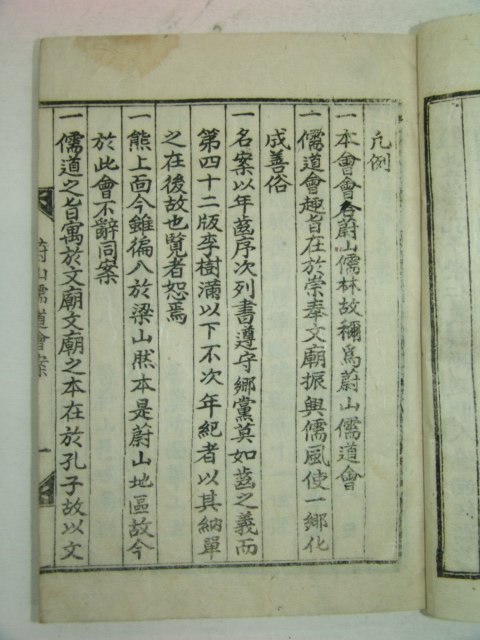 凡例
一本會會合蔚山儒林故稱爲蔚山儒道會
一儒道會趣旨在於崇奉文廟振興儒風使一鄉化
成善俗
一名案以年齒序次列書遵守鄉黨莫如齒之義而
第四十二版李樹滿以下不次年紀者以其納單
之在後故也覽者恕焉
一熊上面今雖徧入於梁山然本是蔚山地區故今
於此會不辭同案
一儒道之旨寓於文廟文廟之本在於孔子故以文
蔚山儒道會案
一